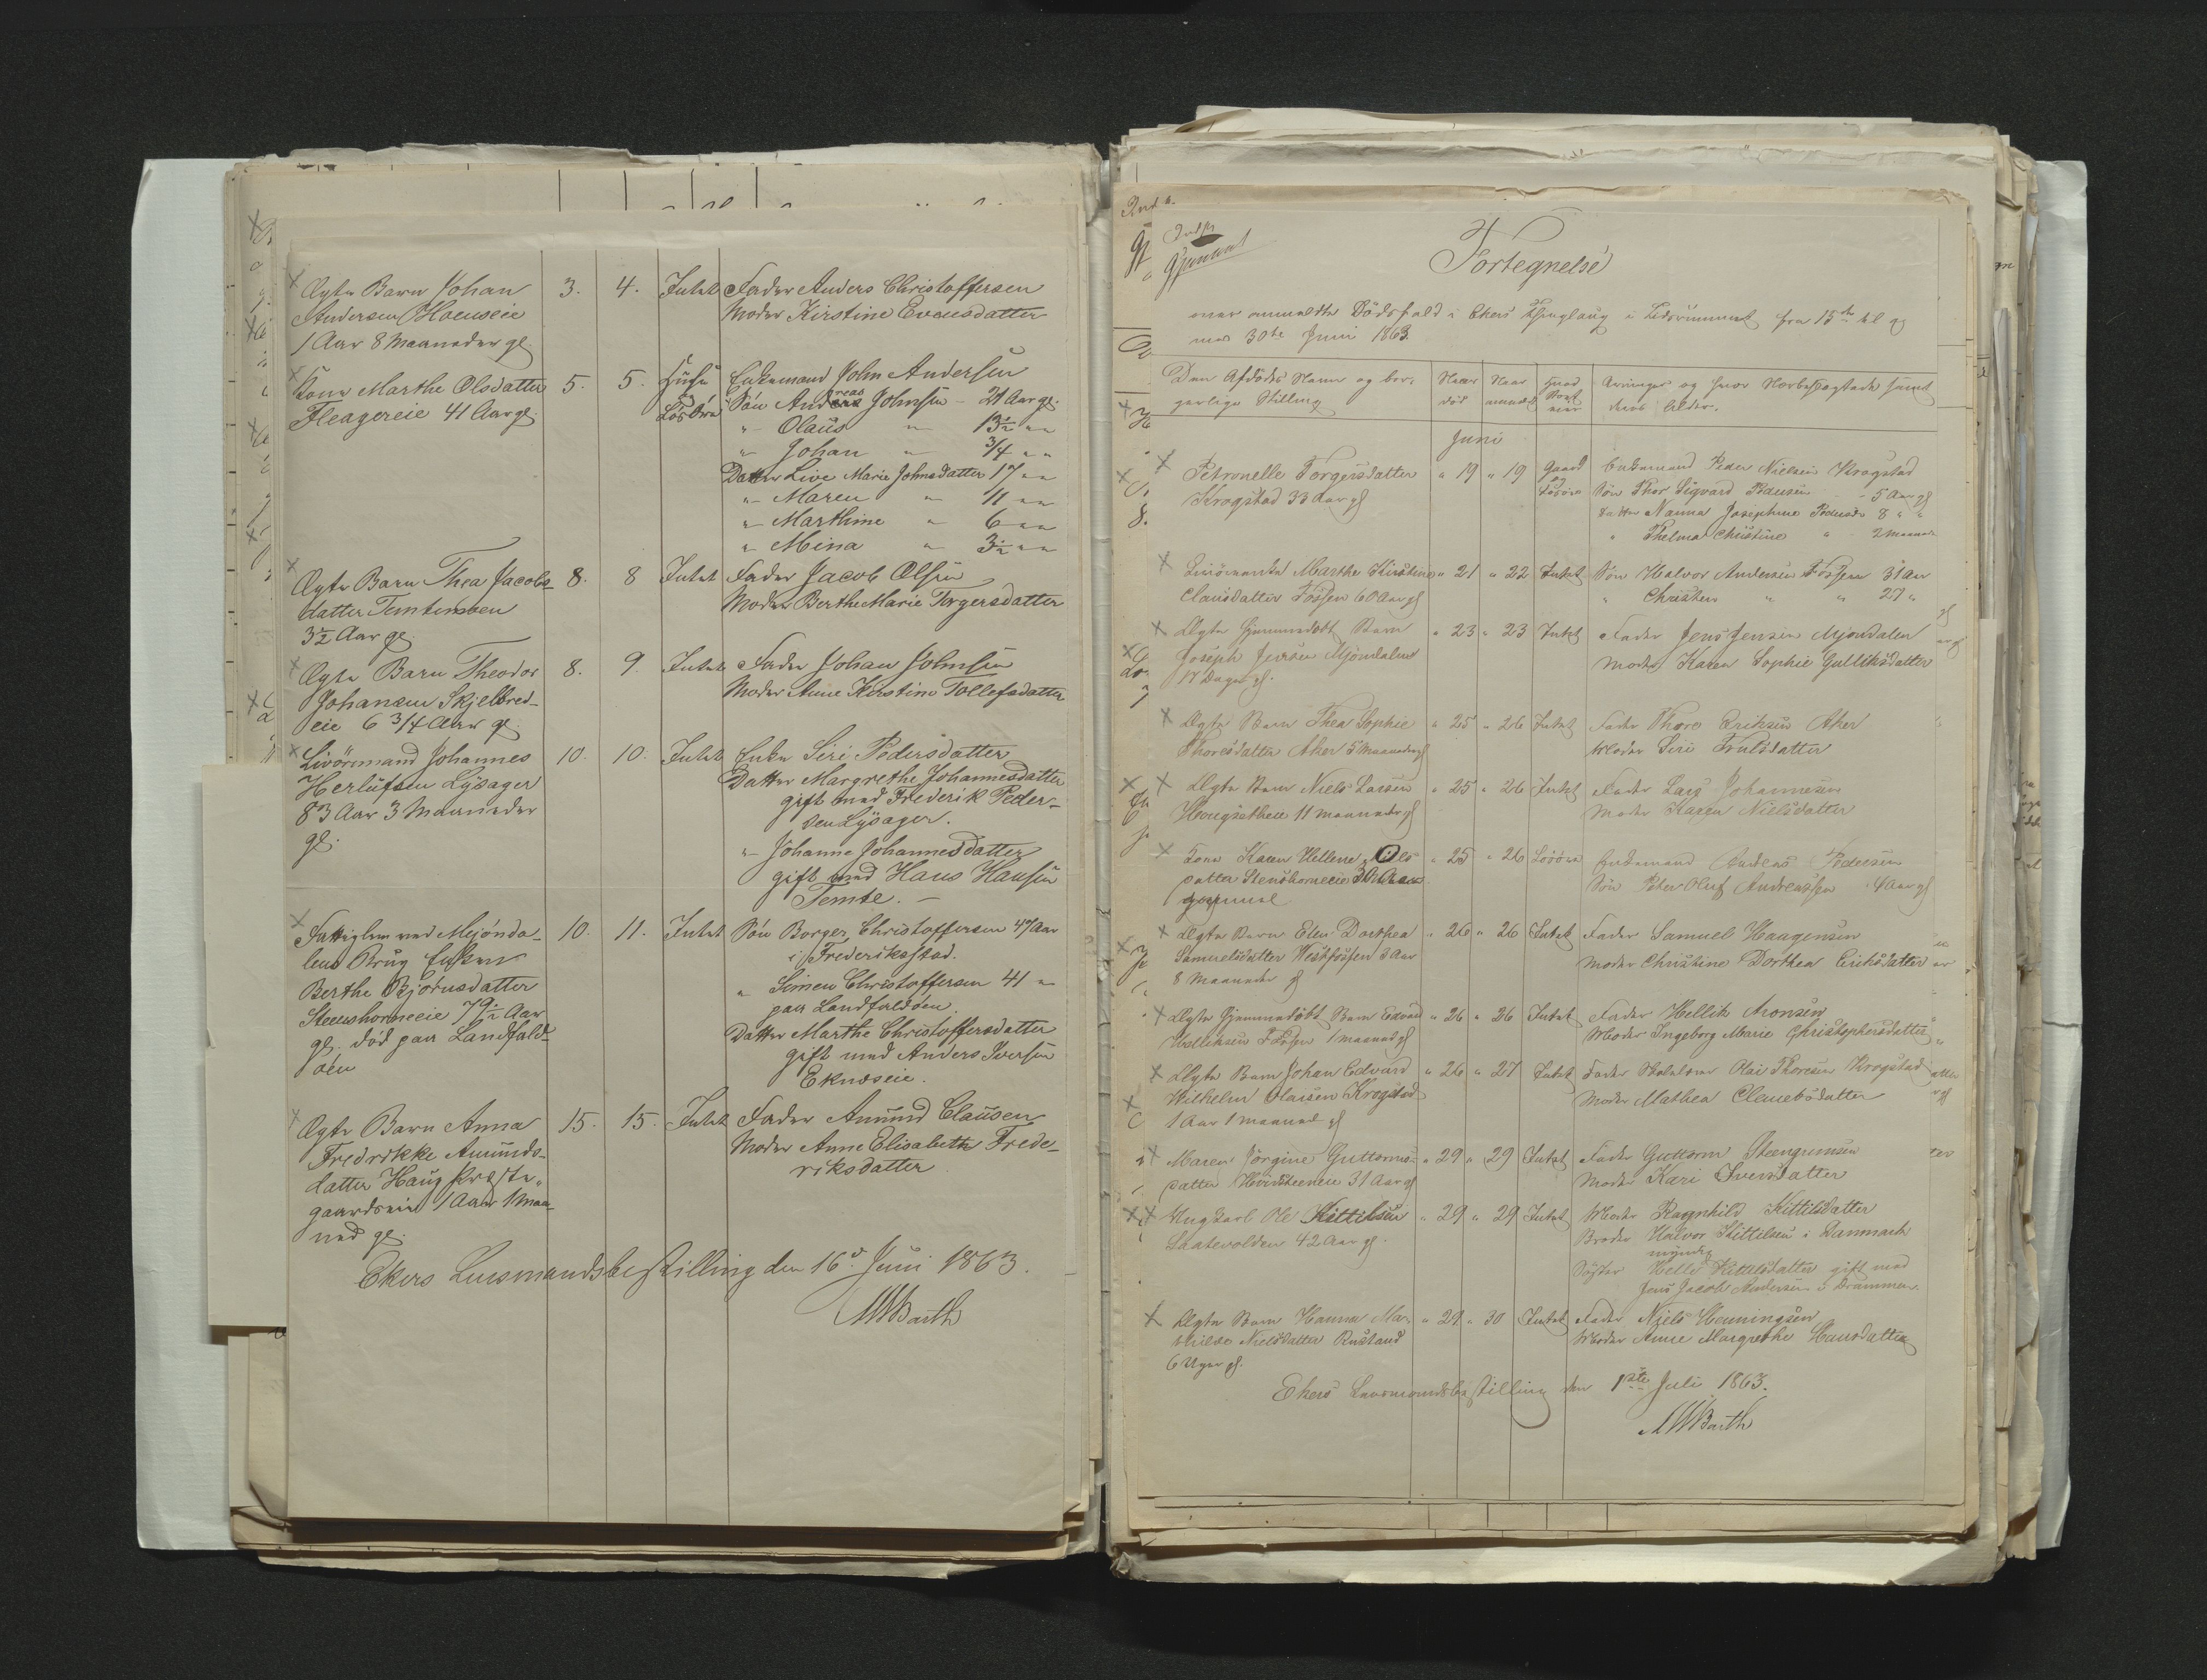 Ægte Barn Johan 3. 4. Intet Fader Anders Christoffersen
Andersen Hoenseie Moder Kirstine Evensdatter
1 Aar 8 Maaneder gl.
Kone Marthe Olsdatter 5. 5. Huse Enkemand John Andersen
Fleagereie 41 Aar gl. og Løsöre Sön Andreas Johnsen - 21 Aar gl.
" Olaus " 13½ " "
" Johan " 3/4 " "
Datter Live Marie Johnsdatter 17 " "
" Maren " 11 " "
" Marthine " 6 " "
" Mina " 3½ " "
Ægte Barn Thea Jacobs- 8. 8 Intet Fader Jacob Olsen
datter Temtemoen Moder Berthe Marie Torgersdatter
3½ Aar gl.
Ægte Barn Theodor 8. 9. Intet Fader Johan Johnsen
Johansen Skjelbred- Moder Anne Kirstine Tollefsdatter
eie 6 3/4 Aar gl.
Livöremand Johannes 10. 10. Intet Enke Siri Pedersdatter
Herlufsen Lysager Datter Margrethe Johannesdatter
83 Aar 3 Maaneder gift med Frederik Peder-
gl. sen Lysager.
" Johanne Johannesdatter
gift med Hans Hansen
Temte. -
Fattiglem ved Mejönda- 10. 11. Intet Sön Borger Christoffersen 47 Aar
lens Brug Enken i Frederiksstad.
Berthe Björnsdatter " Simen Christoffersen 41 "
Steenshorneeie 79½ Aar paa Landfaldöen
gl. död paa Landfald- Datter Marthe Christoffersdatter
öen gift med Anders Iversen
Eknæseie.
Ægte Barn Anna 15. 15. Intet Fader Amund Clausen
Fredrikke Amunds- Moder Anne Elisabeth Frede-
datter Haug Præste- riksdatter
gaardseie 1 Aar 1 Maa-
ned gl.
Ekers Lensmandsbestilling den 16d Juni 1863.
MWBarth
Gjenpart
Fortegnelse
over anmeldte Dödsfald i Ekers Thinglaug i Tidsrummet fra 15de til og
med 30te Juni 1863.
Den Afdödes Navn og bor- Naar Naar Hvad Arvinger og hvor Norbosagtede samt
gerlige Stilling död anmeldt Boet eier deres Alder.
Juni
Petronelle Torgersdatter " 19 " 19 Gaard Enkemand Peder Nielsen Krogstad
Krogstad 33 Aar gl og Lösöre Sön Thor Sigvard Pedersen " 5 Aar gl
Datter Nanna Josephine Pedersd. 8 " "
" Thelma Christine " 2 Maaned
Livörenke Marthe Kirstine " 21 " 22 Intet Sön Halvor Andersen Fossen 31 Aar
Clausdatter Fossen 60 Aar gl " Christen " " 27 "
Ægte hjemmedöbt Barn " 23 " 23 Intet Fader Jens Jensen Mjöndalen
Joseph Jensen Mjöndalen Moder Karen Sophie Gulliksdatter
17 Dage gl.
Ægte Barn Thea Sophie " 25 " 26 Intet Fader Thore Eriksen Aker
Thoresdatter Aker 5 Maaneder gl Moder Siri Trulsdatter
Ægte Barn Niels Larsen " 25 " 26 Intet Fader Lars Johannesen
Hougsethen 11 Maaneder gl Moder Karen Nielsdatter
Kone Karen Hellene Ols- " 25 " 26 Lösöre Enkemand Andreas Pedersen
datter Stenshorneeie 30 Aar Sön Peter Oluf Andreassen 4 Aar gl
gammel
Ægte Barn Elen Dorthea " 26 " 26 Intet Fader Samuel Haagensen
Samuelsdatter Vestfossen 3 Aar Moder Christine Dorthea Eriksdatter
8 Maaneder gl
Ægte hjemmedöbt Barn Edvard " 26 " 26 Intet Fader Hellik Aronsen
Helliksen Fossen 1 Maaned gl Moder Ingeborg Marie Christophersdatter
Ægte Barn Johan Edvard " 26 " 27 Intet Fader Skolelærer Olai Thoresen Krogstad
Wilhelm Olaisen Krogstad Moder Mathea Clemetsdatter
1 Aar 1 Maaned gl
Maren Jörgine Guttorms- " 29 " 29 Intet Fader Guttorm Steengrimsen
datter Hvidsteenen 31 Aar gl Moder Kari Iversdatter
Ungkarl Ole Kittilsen " 29 " 29 Intet Moder Ragnhild Kittilsdatter
Laatevolden 42 Aar gl. Broder Halvor Kittilsen i Danmark
myndig
Söster Helle Kittilsdatter gift med
Jens Jacob Andersen i Drammen.
Ægte Barn Hanna Ma- " 29 " 30 Intet Fader Niels Henningsen
thilde Nielsdatter Rustand Moder Anne Margrethe Hansdatter
6 Uger gl.
Ekers Lensmandsbestilling den 1ste Juli 1863.
MWBarth